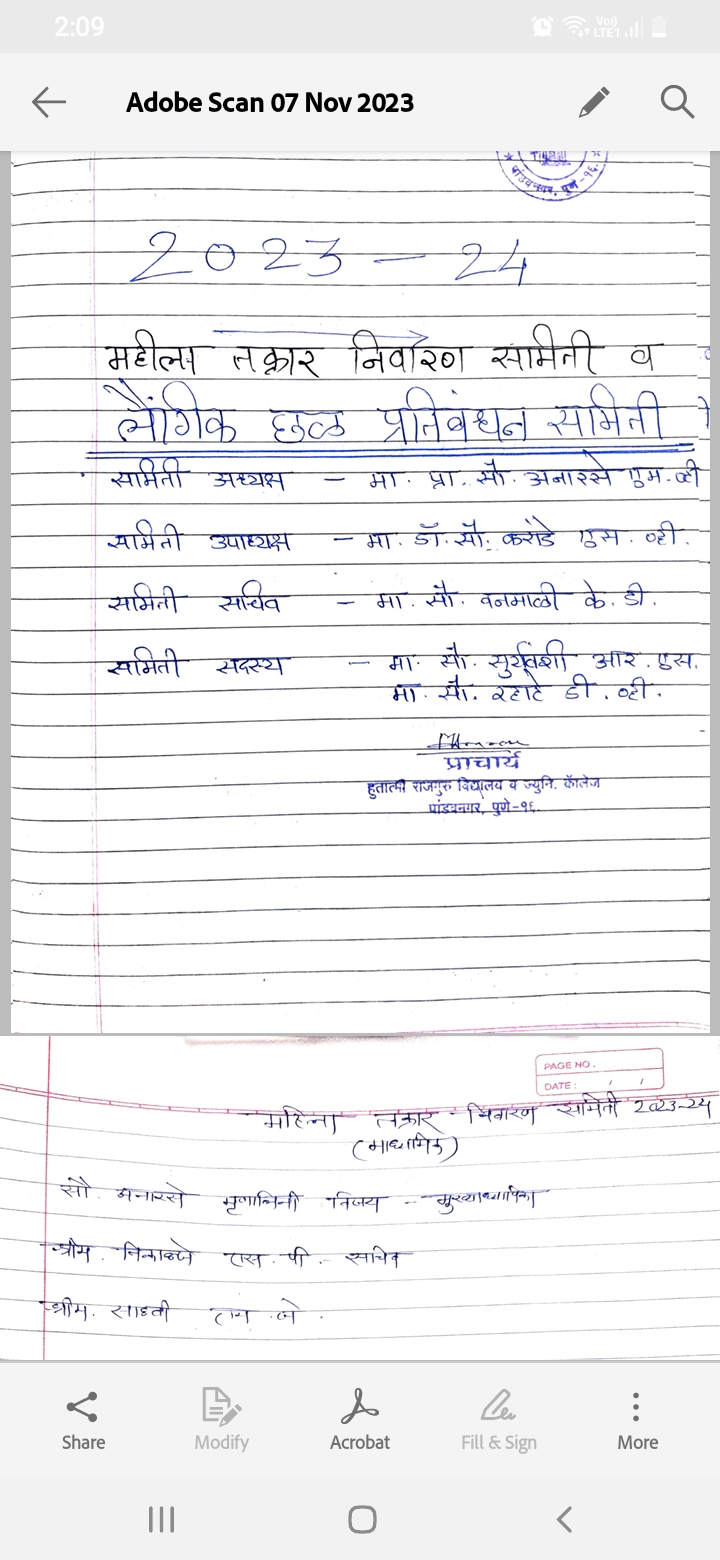 2:09
Vo))
LTE1
Adobe Scan 07 Nov 2023
पांडवनगर, पुणे-१६.
2023 - 24
महीला तक्रार निवारण समिती व
लैंगिक छळ प्रतिबंधन समिती
समिती अध्यक्ष - मा. प्रा. सौ. अनारसे एम. व्ही
समिती उपाध्यक्ष - मा. डॉ. सौ. करांडे एस. व्ही.
समिती सचिव - मा. सौ. वनमाळी के. डी.
समिती सदस्य - मा. सौ. सुर्यवंशी आर. एस.
मा. सौ. रहाटे डी. व्ही.
प्राचार्य
हुतात्मा राजगुरु विद्यालय व ज्युनि. कॉलेज
पांडवनगर, पुणे-१६.
PAGE NO.
DATE: / /
महिला तक्रार - निवारण समिती 2023-24
(माध्यमिक)
सौ अनारसे मृणालिनी विजय - मुख्याध्यापिका
श्रीम. निकाळजे एस. पी. - सचिव
श्रीम. एन. जे.
Share
Modify
Acrobat
Fill & Sign
More